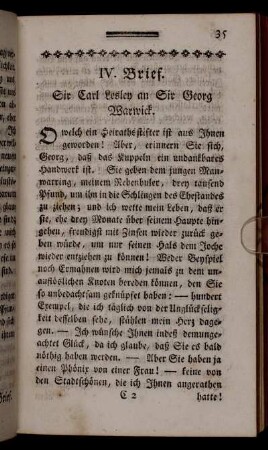 35
IV. Brief.
Sir Carl Lesley an Sir Georg
Warwick.
O welch ein Heirathsstifter ist aus Ihnen
geworden! Aber, erinnern Sie sich,
Georg, daß das Kuppeln ein undankbares
Handwerk ist. Sie geben dem jungen Man-
warring, meinem Nebenbuler, drey tausend
Pfund, um ihn in die Schlingen des Ehestandes
zu ziehen; und ich wette mein Leben, daß er
sie, ehe drey Monate über seinem Haupte hin-
gehen, freudigst mit Zinsen wieder zurück ge-
ben würde, um nur seinen Hals dem Joche
wieder entziehen zu können! Weder Beyspiel
noch Ermahnen wird mich jemals zu dem un-
auflöslichen Knoten bereden können, den Sie
so unbedachtsam geknüpfet haben; — hundert
Exempel, die ich täglich von der Unglückselig-
keit desselben sehe, stählen mein Herz dage-
gen. — Ich wünsche Ihnen indeß demunge-
achtet Glück, da ich glaube, daß Sie es bald
nöthig haben werden. — Aber Sie haben ja
einen Phönix von einer Frau! — keine von
den Stadtschönen, die ich Ihnen angerathen
C 2 hatte!